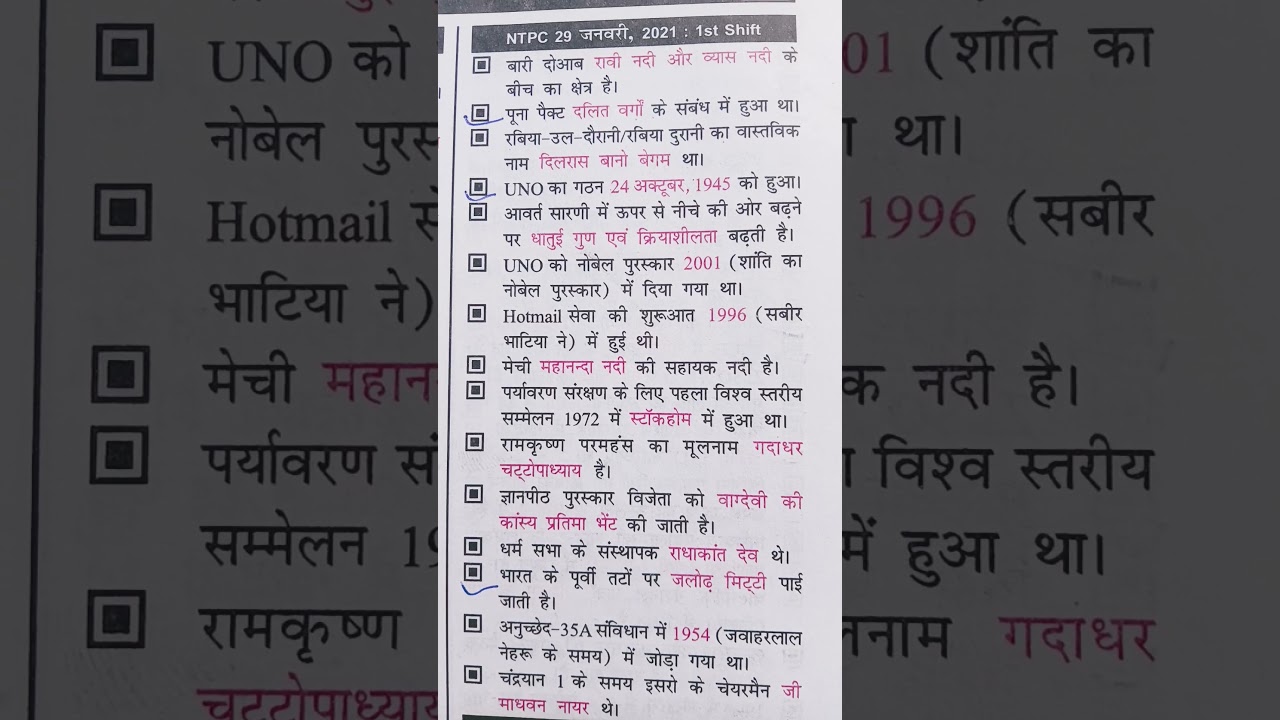 NTPC 29 जनवरी, 2021 : 1st Shift
बारी दोआब रावी नदी और व्यास नदी के
बीच का क्षेत्र है।
पूना पैक्ट दलित वर्गों के संबंध में हुआ था।
रबिया-उल-दौरानी/रबिया दुरानी का वास्तविक
नाम दिलरास बानो बेगम था।
UNO का गठन 24 अक्टूबर, 1945 को हुआ।
आवर्त सारणी में ऊपर से नीचे की ओर बढ़ने
पर धातुई गुण एवं क्रियाशीलता बढ़ती है।
UNO को नोबेल पुरस्कार 2001 (शांति का
नोबेल पुरस्कार) में दिया गया था।
Hotmail सेवा की शुरूआत 1996 (सबीर
भाटिया ने) में हुई थी।
मेची महानन्दा नदी की सहायक नदी है।
पर्यावरण संरक्षण के लिए पहला विश्व स्तरीय
सम्मेलन 1972 में स्टॉकहोम में हुआ था।
रामकृष्ण परमहंस का मूलनाम गदाधर
चट्टोपाध्याय है।
ज्ञानपीठ पुरस्कार विजेता को वाग्देवी की
कांस्य प्रतिमा भेंट की जाती है।
धर्म सभा के संस्थापक राधाकांत देव थे।
भारत के पूर्वी तटों पर जलोढ़ मिट्टी पाई
जाती है।
अनुच्छेद-35A संविधान में 1954 (जवाहरलाल
नेहरू के समय) में जोड़ा गया था।
चंद्रयान 1 के समय इसरो के चेयरमैन जी
माधवन नायर थे।